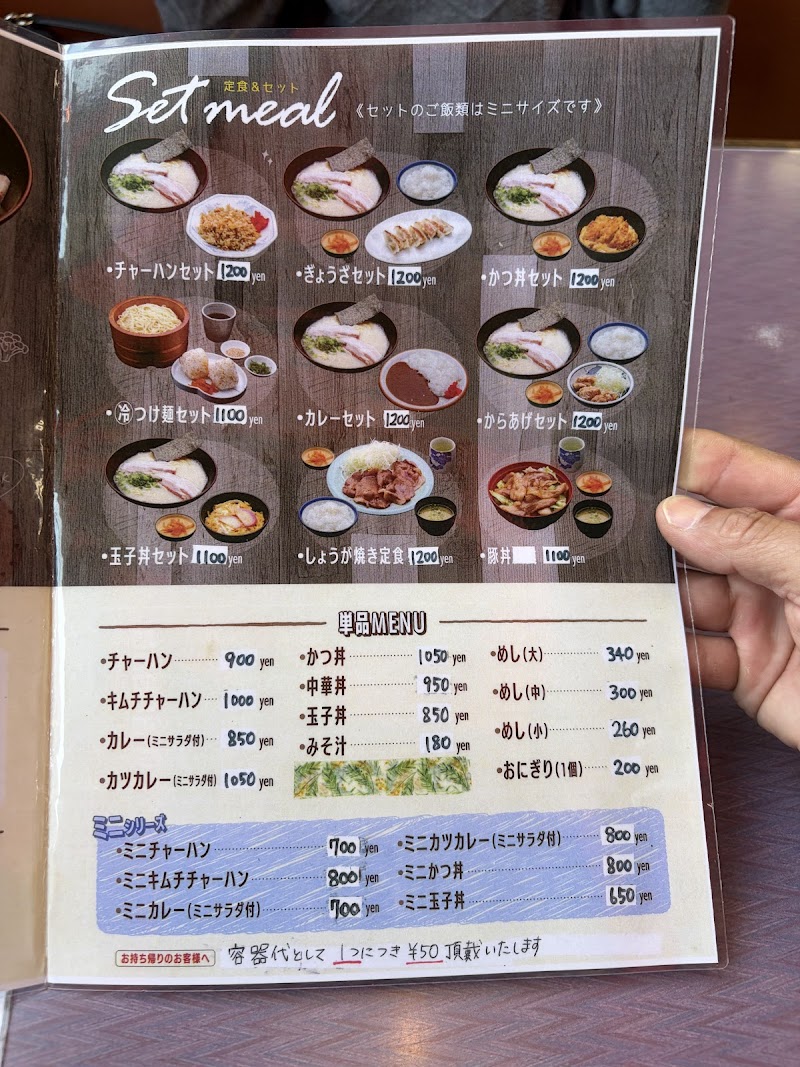 定食&セット
Set meal 《セットのご飯類はミニサイズです》
•チャーハンセット 1200 yen •ぎょうざセット 1200 yen •かつ丼セット 1200 yen
•㊗冷つけ麺セット 1100 yen •カレーセット 1200 yen •からあげセット 1200 yen
•玉子丼セット 1100 yen •しょうが焼き定食 1200 yen •豚丼 1100 yen
単品MENU
•チャーハン 900 yen
•キムチチャーハン 1000 yen
•カレー(ミニサラダ付) 850 yen
•カツカレー(ミニサラダ付) 1050 yen
•かつ丼 1050 yen
•中華丼 950 yen
•玉子丼 850 yen
•みそ汁 180 yen
•めし(大) 340 yen
•めし(中) 300 yen
•めし(小) 260 yen
•おにぎり(1個) 200 yen
ミニシリーズ
•ミニチャーハン 700 yen
•ミニキムチチャーハン 800 yen
•ミニカレー(ミニサラダ付) 700 yen
•ミニカツカレー(ミニサラダ付) 800 yen
•ミニかつ丼 800 yen
•ミニ玉子丼 650 yen
お持ち帰りのお客様へ 容器代として 1つにつき ¥50 頂戴いたします